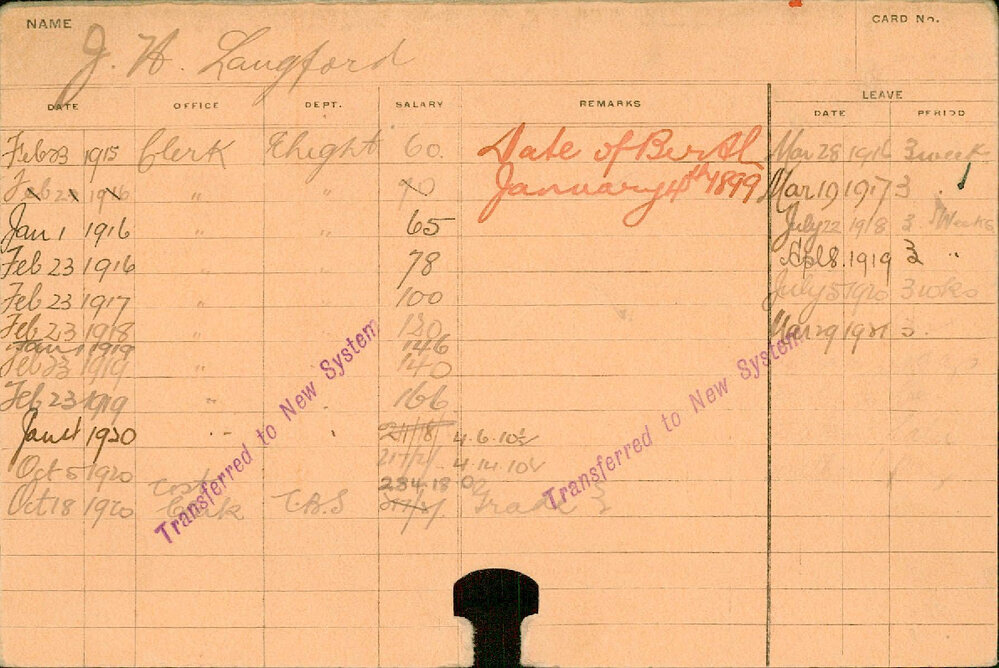 NAME
J. H. Langford
CARD No.
DATE OFFICE DEPT. SALARY REMARKS LEAVE
DATE PERIOD
Feb 23 1915 Clerk 60. Date of Birth Mar 28 1916 3 week
Feb 23 1916 " " 70 January 4th 1899 Mar 19 1917 3 "
Jan 1 1916 " " 65 July 22 1918 3 Weeks
Feb 23 1916 " " 78 Apl 8. 1919 3 "
Feb 23 1917 " " 100 July 5 1920 3 wks
Feb 23 1918 " " 120 Mar 29 1921 3.
Jan 1 1919 146
Feb 23 1919 " 140
Feb 23 1919 " 166
Jan 1 1920 " " 4.6.10½
Oct 5 1920 4.14.10½
234.18.0
Oct 18 1920 Cost Clerk C.B.S Grade 3
Transferred to New System
Transferred to New System